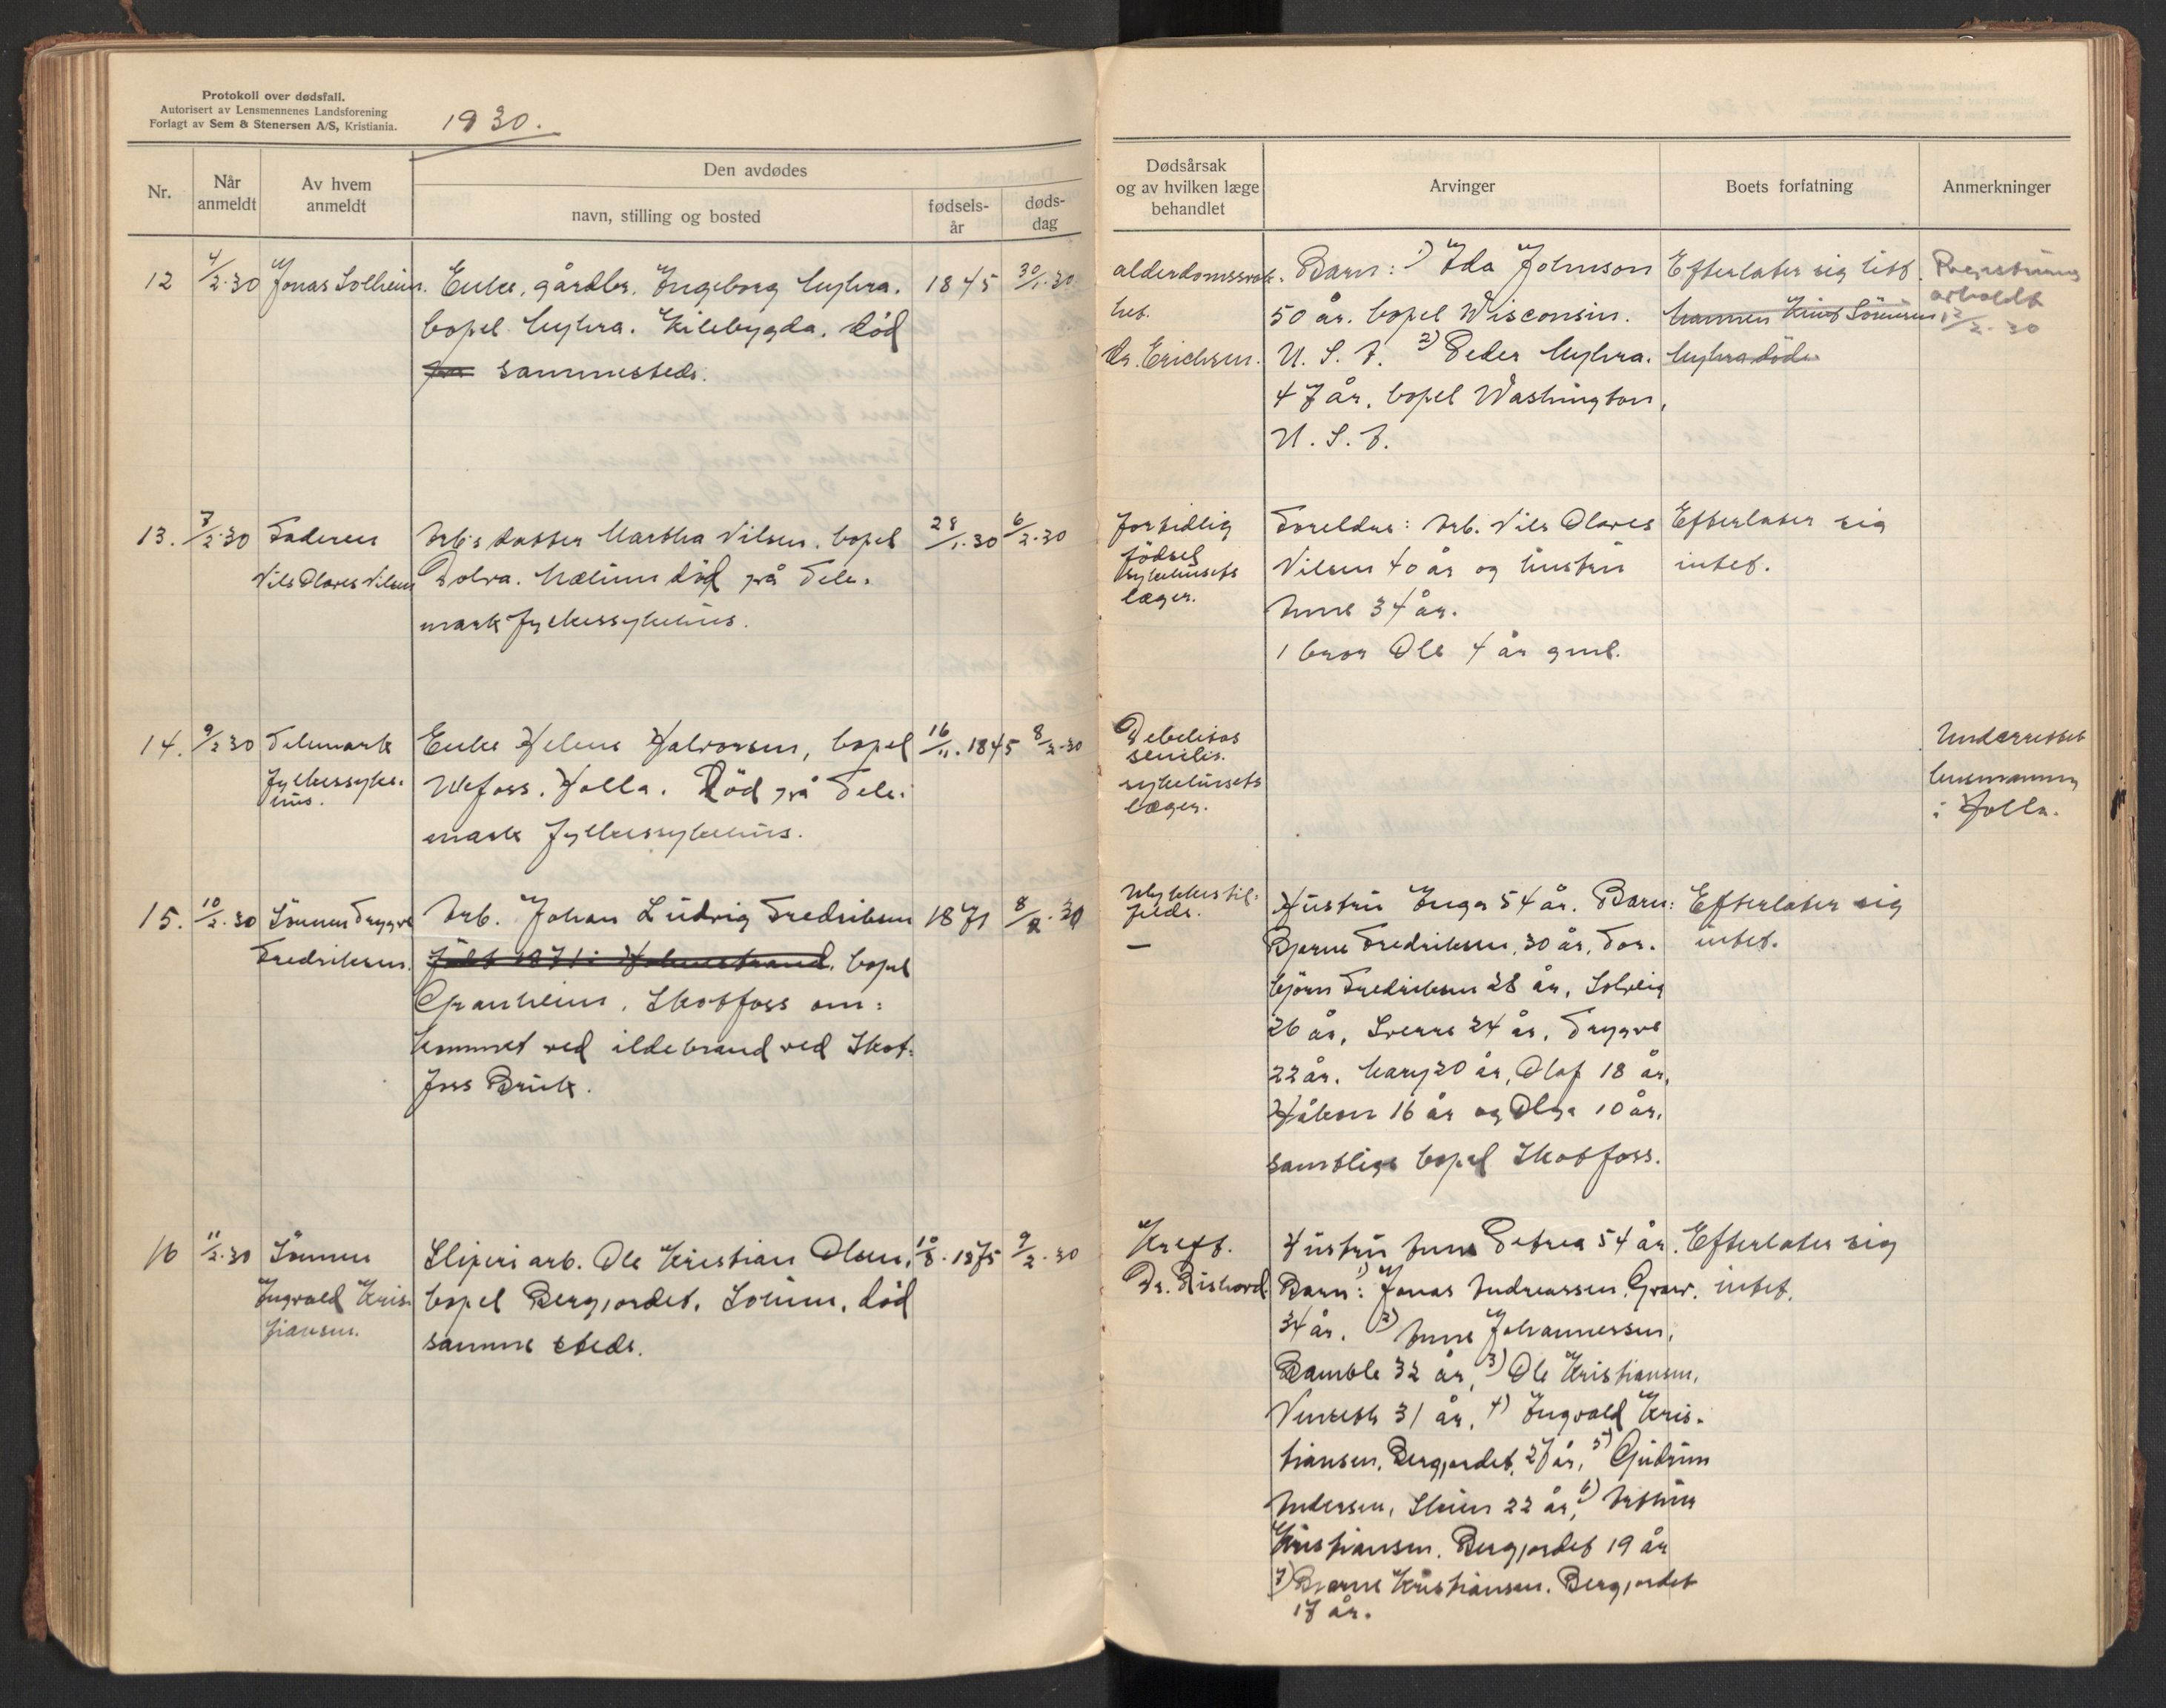 Protokoll over dødsfall.
Autorisert av Lensmennenes Landsforening
Forlagt av Sem & Stenersen A/S, Kristiania.
1930.
Nr.
Når anmeldt
Av hvem anmeldt
Den avdødes
navn, stilling og bosted
fødsels-år
døds-dag
12
4/2.30
Jonas Solheim.
Enke, gårdbr. Ingeborg Myhra.
bopel Myhra. Kilebygda. død
sammesteds.
1845
30/1.30
13.
7/2.30
Faderen
Nils Olaves Nilsen
Arb.s datter Martha Nilsen. bopel
Dolva. Mælum død på Tele-
mark fylkessykehus.
28/1.30
6/2.30
14.
9/2 30
Telemark
fylkessyke-
hus.
Enke Helene Halvorsen, bopel
Ulefoss. Holla. Død på Tele-
mark fylkessykehus.
16/11.1845
8/2.30
15.
10/2.30
Sönnen Trygve
Fredriksen.
Arb. Johan Ludvig Fredriksen
født 1871 i Holmestrand. bopel
Granheim. Skotfoss om-
kommet ved ildebrand ved Skot-
foss Bruk.
1871
8/2.30
16
11/2.30
Sönnen
Ingvald Kris-
tiansen.
Sliperiarb. Ole Kristian Olsen,
bopel Bergjordet. Solum. død
samme steds.
10/8.1875
9/2.30
Dødsårsak
og av hvilken læge
behandlet
Arvinger
Boets forfatning
Anmerkninger
alderdomssvak-
het.
Dr. Erichsen.
Barn: 1) Ida Johnson
50 år. bopel Wisconsin.
U. S. A. 2) Peder Myhra.
47 år. bopel Washington,
U. S. A.
Efterlater sig litt.
mannen Knut Sörensen
Myhra døde
Registrering
avholdt
12/2.30
for tidlig
födsel
sykehusets
læger.
Foreldre: Arb. Nils Olaves
Nilsen 40 år og hustru
Anne 34 år.
1 bror Ole 4 år gml.
Efterlater sig
intet.
Debelitas
senilis.
sykehusets
læger.
Underrettet
lensmannen
i Holla.
Ulykkestil-
felde.
—
Hustru Inga 54 år. Barn:
Bjarne Fredriksen, 30 år, Tor-
björn Fredriksen 28 år, Solveig
26 år, Sverre 24 år, Trygve
22 år. Mary 20 år, Olaf 18 år,
Håkon 16 år og Olga 10 år.
samtlige bopel Skotfoss.
Efterlater sig
intet.
Kreft.
Dr. Risvord.
Hustru Anne Petrea 54 år.
Barn: 1) Jonas Andreassen. Graw.
34 år. 2) Anne Johannessen,
Bamble 32 år, 3) Ole Kristiansen,
Venestb 31 år, 4) Ingvald Kris-
tiansen. Bergjordet, 27 år, 5) Gudrun
Andersen, Skien 22 år, 6) Arthur
Kristiansen. Bergjordet 19 år
7) Bjarne Kristiansen. Bergjordet
17 år.
Efterlater sig
intet.